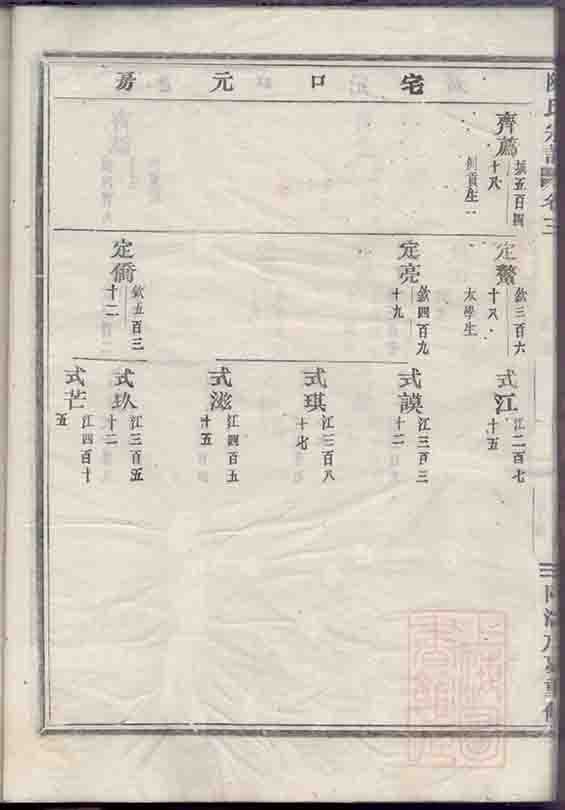 宅口元房
齊薦
振五百四
十八
例貢生
定鰲
欽三百六
十八
太學生
定亮
欽四百九
十九
定僑
欽五百三
十二
式江
江二百七
十五
式謨
江三百三
十二
式琪
江三百八
十七
式滋
江四百五
十五
式玖
江三百五
十二
式芒
江四百十
五
陳氏宗譜
卷三
上海圖書館藏